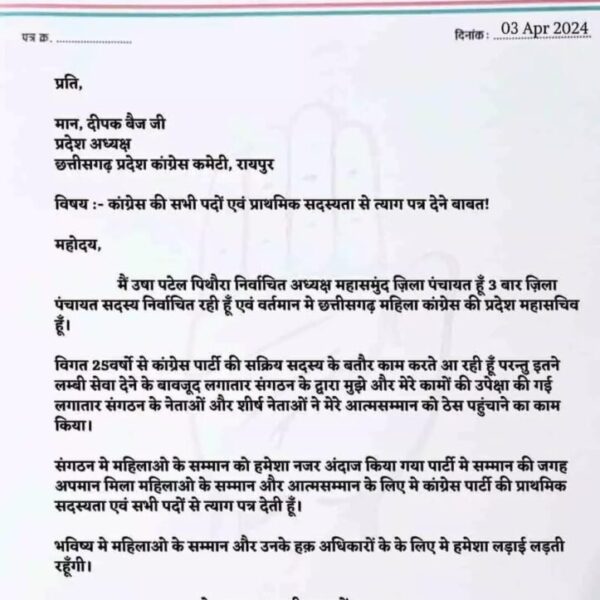 पत्र क्र. ........................
दिनांक: 03 Apr 2024
प्रति,
मान, दीपक बैज जी
प्रदेश अध्यक्ष
छत्तीसगढ़ प्रदेश कांग्रेस कमेटी, रायपुर
विषय :- कांग्रेस की सभी पदों एवं प्राथमिक सदस्यता से त्याग पत्र देने बाबत!
महोदय,
मैं उषा पटेल पिथौरा निर्वाचित अध्यक्ष महासमुंद ज़िला पंचायत हूँ 3 बार ज़िला
पंचायत सदस्य निर्वाचित रही हूँ एवं वर्तमान मे छत्तीसगढ़ महिला कांग्रेस की प्रदेश महासचिव
हूँ।
विगत 25वर्षो से कांग्रेस पार्टी की सक्रिय सदस्य के बतौर काम करते आ रही हूँ परन्तु इतने
लम्बी सेवा देने के बावजूद लगातार संगठन के द्वारा मुझे और मेरे कामों की उपेक्षा की गई
लगातार संगठन के नेताओं और शीर्ष नेताओं ने मेरे आत्मसम्मान को ठेस पहुंचाने का काम
किया।
संगठन मे महिलाओ के सम्मान को हमेशा नजर अंदाज किया गया पार्टी मे सम्मान की जगह
अपमान मिला महिलाओ के सम्मान और आत्मसम्मान के लिए मे कांग्रेस पार्टी की प्राथमिक
सदस्यता एवं सभी पदों से त्याग पत्र देती हूँ।
भविष्य मे महिलाओ के सम्मान और उनके हक़ अधिकारों के के लिए मे हमेशा लड़ाई लड़ती
रहूँगी।